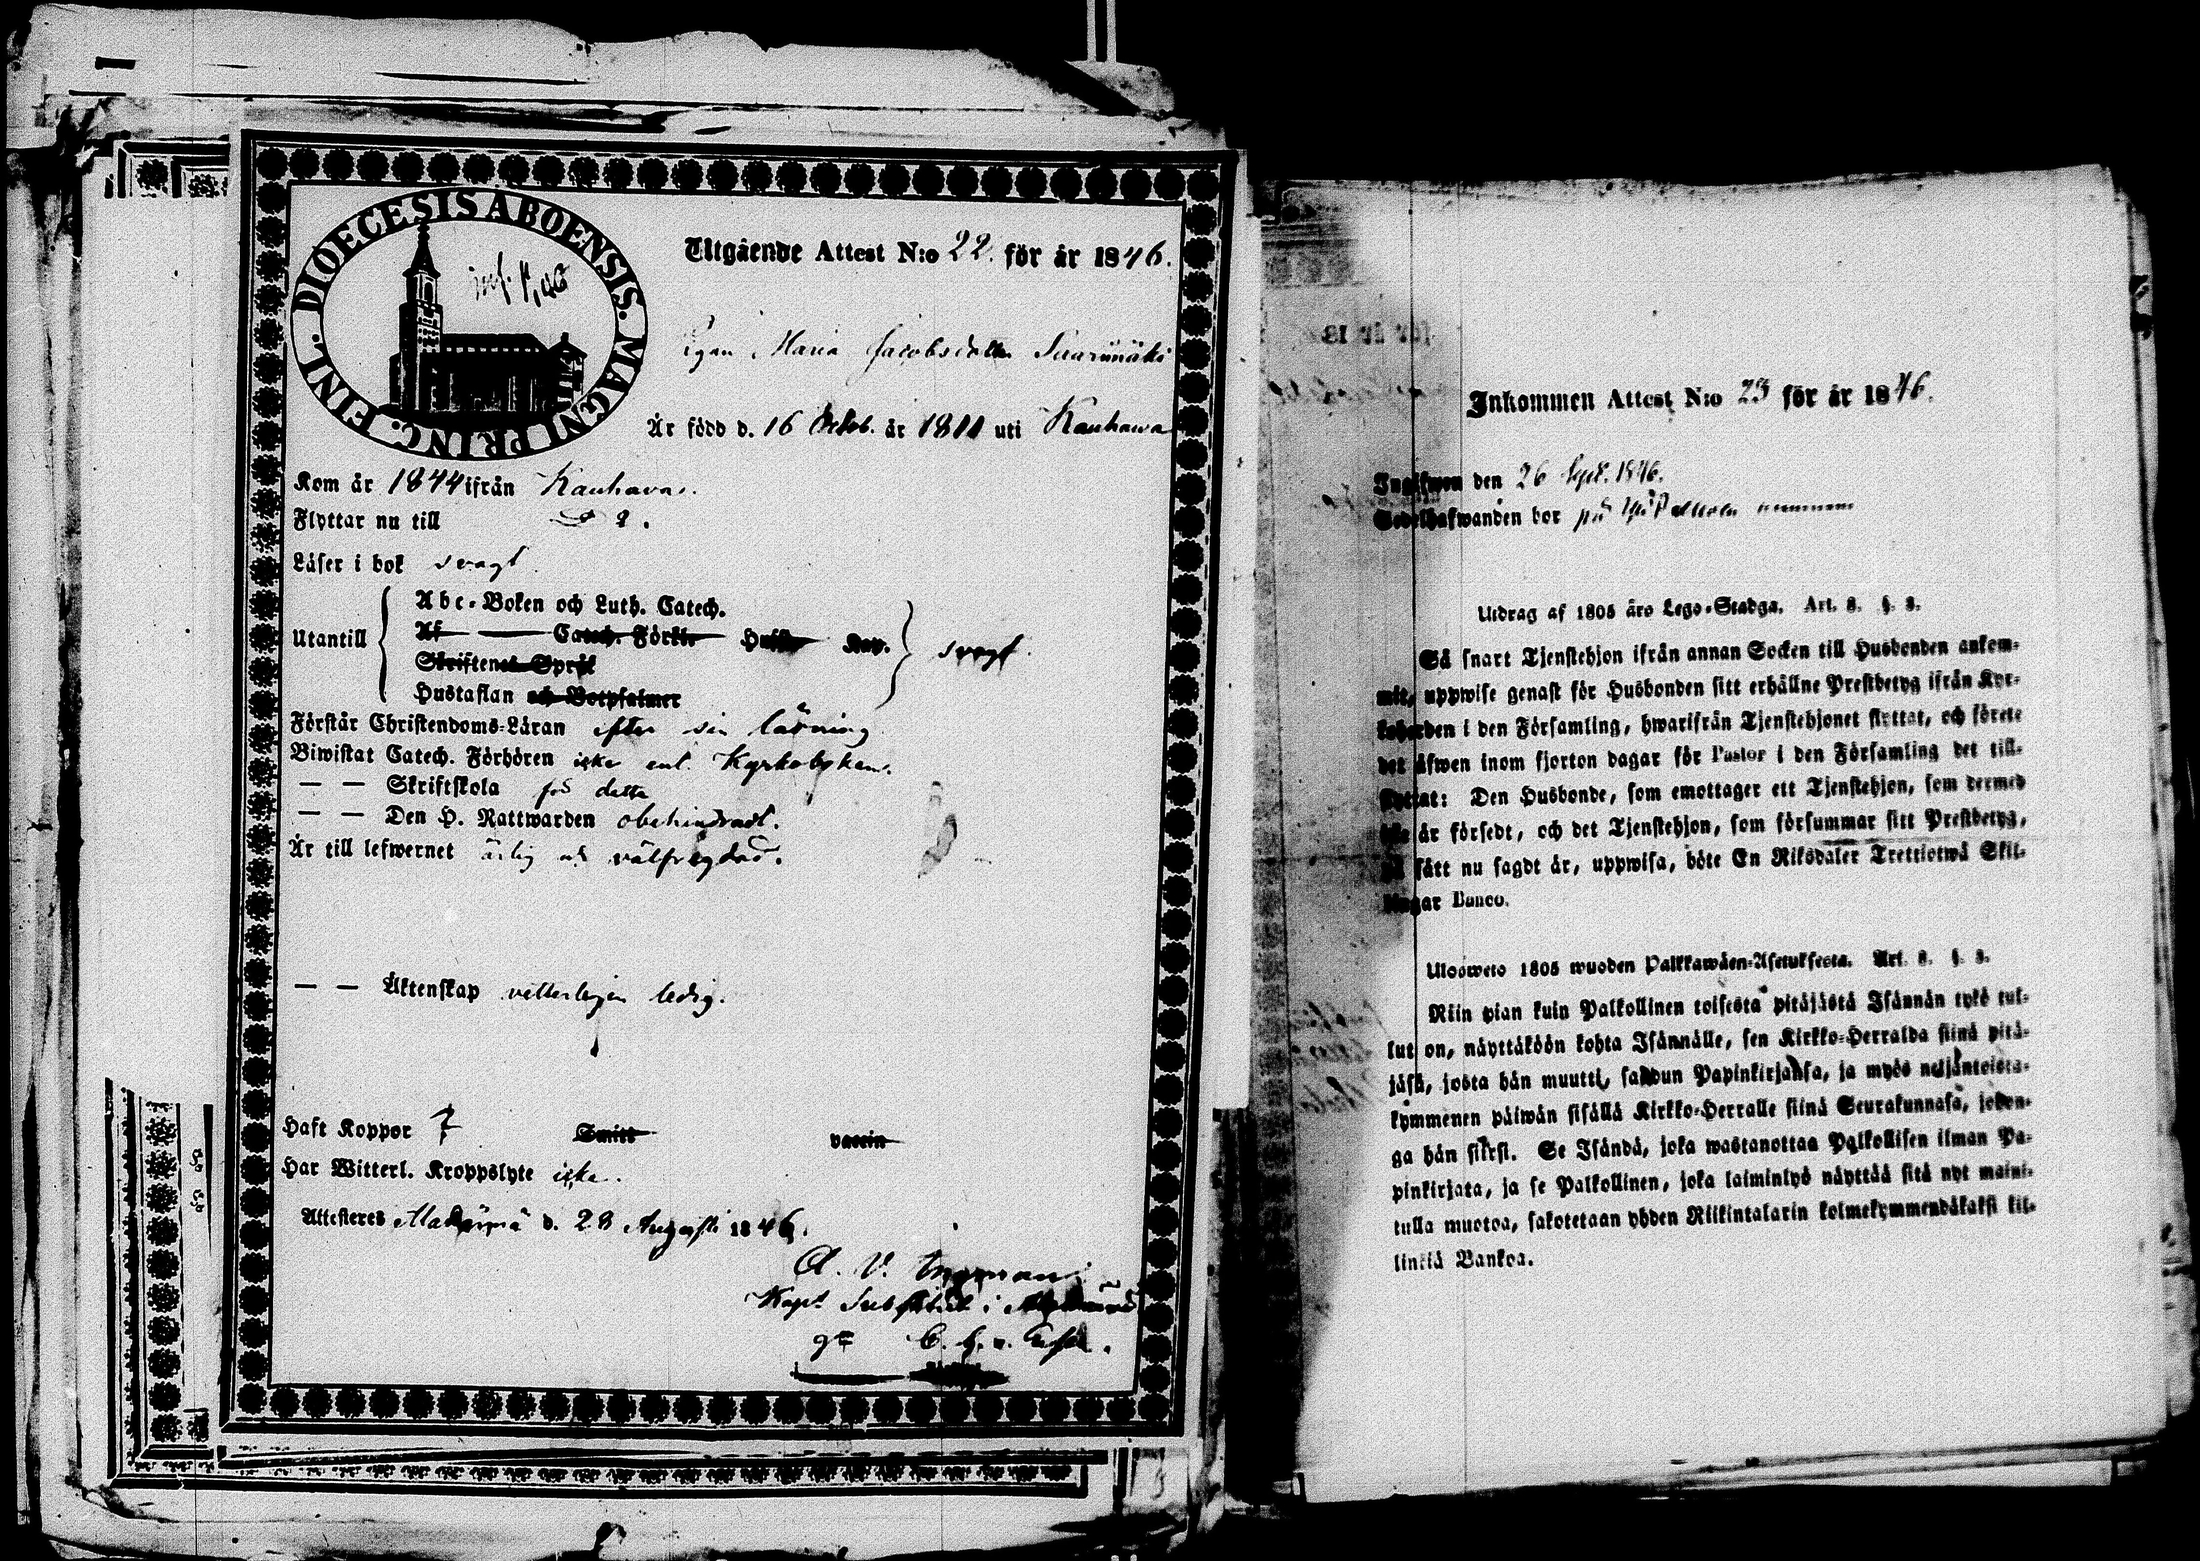 DIOECESIS ABOENSIS. MAGNI PRINC. FINL.
inf. p, 46
Utgående Attest N:o 22. för år 1846.
Pigan Maria Jacobsdotter Saarimäki
Är född d. 16 Octob. är 1811 uti Kauhawa
Kom år 1844 ifrån Kauhava.
Flyttar nu till
Läser i bok svagt
Abc-Boken och Luth. Catech.
Af — Catech. Förkl. Hust. Kap.
Utantill svagt.
Skriftenes Språk
Hustaflan och Botpsalmer
Förstår Christendoms-Läran efter sin lärning
Biwistat Catech. Förhören icke enl. Kyrkoboken.
— — Skriftskola före detta
— — Den H. Nattwarden obehindradt.
Är till lefwernet ärlig och välfrägdad.
— — Äktenskap vetterligen ledig.
Haft Koppor ? Smitt vaccin
Har Witterl. Kroppslyte icke.
Attesteras d. 28 Augusti 1846.
A. V. Ingman
Kap. i
Inkommen Attest N:o 23 för år 1846.
Ingifwen den 26 Sept. 1846.
Sedelhafwanden bor på
Utdrag af 1805 års Lego-Stadga. Art. 8. §. 8.
Så snart Tjenstehjon ifrån annan Socken till Husbonden ankom-
mit, uppwise genast för Husbonden sitt erhållne Prestbetyg ifrån Kyr-
koherden i den Församling, hwarifrån Tjenstehjonet flyttat, och förete
det äfwen inom fjorton dagar för Pastor i den Församling det till-
flyttat: Den Husbonde, som emottager ett Tjenstehjon, som dermed
icke är försedt, och det Tjenstehjon, som försummar sitt Prestbetyg,
på sätt nu sagdt är, uppwisa, böte En Riksdaler Trettiotwå Skil-
lingar Banco.
Ulosweto 1805 wuoden Palkkawäen-Asetuksesta. Art. 8. §. 8.
Niin pian kuin Palkollinen toisesta pitäjästä Isännän tykö tul-
lut on, näyttäköön kohta Isännälle, sen Kirkko-Herralda siinä pitä-
jäsä, josta hän muutti, saadun Papinkirjansa, ja myös neljäntoista-
kymmenen päiwän sisällä Kirkko-Herralle siinä Seurakunnasa, johon-
ga hän siirsi. Se Isändä, joka wastanottaa Palkollisen ilman Pa-
pinkirjata, ja se Palkollinen, joka laiminlyö näyttää sitä nyt maini-
tulla muotoa, sakotetaan yhden Riikintalarin kolmekymmendäkaksi kil-
linkiä Bankoa.